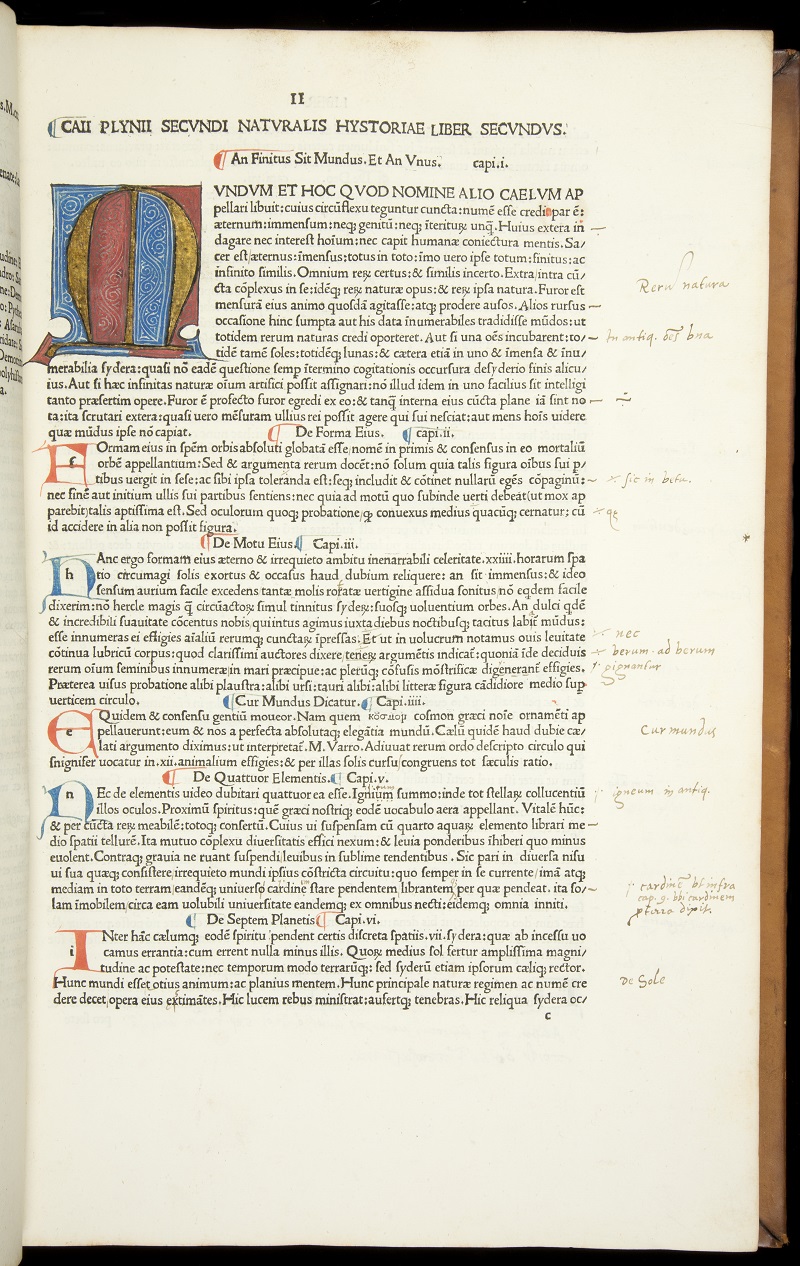 II
CAII PLYNII SECVNDI NATVRALIS HYSTORIAE LIBER SECVNDVS.
An Finitus Sit Mundus. Et An Vnus. capi.i.
MVNDVM ET HOC QVOD NOMINE ALIO CAELVM AP
pellari libuit: cuius circūflexu teguntur cuncta: numē esse credi par ē:
æternum: immensum: neq; genitū: neq; īterituꝝ unq̄. Huius extera in
dagare nec interest hoīum: nec capit humanæ coniectura mentis. Sa/
cer est: æternus: īmensus: totus in toto: īmo uero ipse totum: finitus: ac
infinito similis. Omnium reꝝ certus: & similis incerto. Extra: intra cū/
cta cōplexus in se: idēq; reꝝ naturæ opus: & reꝝ ipsa natura. Furor est
mensurā eius animo quosdā agitasse: atq; prodere ausos. Alios rursus
occasione hinc sumpta aut his data īnumerabiles tradidisse mūdos: ut
totidem rerum naturas credi oporteret. Aut si una oēs incubarent: to/
tidē tamē soles: totidēq; lunas: & cætera etiā in uno & īmensa & īnu/
merabilia sydera: quasi nō eadē questione semp ītermino cogitationis occursura desyderio finis alicu/
ius. Aut si hæc infinitas naturæ oīum artifici possit assignari: nō illud idem in uno facilius sit intelligi
tanto præsertim opere. Furor ē profecto furor egredi ex eo: & tanq̄ interna eius cūcta plane iā sint no
ta: ita scrutari extera: quasi uero mēsuram ullius rei possit agere qui sui nesciat: aut mens hoīs uidere
quæ mūdus ipse nō capiat. De Forma Eius. capi.ii.
FOrmam eius in spēm orbis absoluti globatā esse: nomē in primis & consensus in eo mortaliū
orbē appellantium: Sed & argumenta rerum docēt: nō solum quia talis figura oībus sui p/
tibus uergit in sese: ac sibi ipsa toleranda est: seq; includit & cōtinet nullarū egēs cōpaginū:
nec finē aut initium ullis sui partibus sentiens: nec quia ad motū quo subinde uerti debeat (ut mox ap
parebit) talis aptissima est. Sed oculorum quoq; probatione: q̨ conuexus medius quacūq; cernatur: cū
id accidere in alia non possit figura.
De Motu Eius. Capi.iii.
HAnc ergo formam eius æterno & irrequieto ambitu inenarrabili celeritate .xxiiii. horarum spa
tio circumagi solis exortus & occasus haud dubium reliquere: an sit immensus: & ideo
sensum aurium facile excedens tantæ molis rotatæ uertigine assidua sonitus nō eqdem facile
dixerim: nō hercle magis q̄ circūactoꝝ simul tinnitus sydeꝝ: suosq; uoluentium orbes. An dulci qdē
& incredibili suauitate cōcentus nobis qui intus agimus iuxta diebus noctibusq; tacitus labit̄ mūdus:
esse innumeras ei effigies aīaliū rerumq; cunctaꝝ īpressas. Et ut in uolucrum notamus ouis leuitate
cōtinua lubricū corpus: quod clarissimi auctores dixere: teneꝝ argumētis indicat̄: quoniā īde deciduis
rerum oīum seminibus innumeræ in mari præcipue: ac pleruq; cōfusis mōstrificæ digenerant̄ effigies.
Præterea uisus probatione alibi plaustra: alibi ursi: tauri alibi: alibi litteræ figura cādidiore medio sup
uerticem circulo. Cur Mundus Dicatur. Capi.iiii.
EQuidem & consensu gentiū moueor. Nam quem κοσμον cosmon græci noīe ornamēti ap
pellauerunt: eum & nos a perfecta absolutaq; elegātia mundū. Cælū quidē haud dubie cæ/
lati argumento diximus: ut interpretat̄. M. Varro. Adiuuat rerum ordo descripto circulo qui
signifer uocatur in .xii. animalium effigies: & per illas solis cursu congruens tot sæculis ratio.
De Quattuor Elementis. Capi.v.
NEc de elementis uideo dubitari quattuor ea esse. Ignium summo: inde tot stellaꝝ collucentiū
illos oculos. Proximū spiritus: quē græci nostriq; eodē uocabulo aera appellant. Vitalē hūc:
& per cūcta reꝝ meabilē: totoq; consertū. Cuius ui suspensam cū quarto aquaꝝ elemento librari me
dio spatii tellurē. Ita mutuo cōplexu diuersitatis effici nexum: & leuia ponderibus īhiberi quo minus
euolent. Contraq; grauia ne ruant suspendi leuibus in sublime tendentibus. Sic pari in diuersa nisu
ui sua quæq; consistere irrequieto mundi ipsius cōstricta circuitu: quo semper in se currente: imā atq;
mediam in toto terram: eandēq; uniuerso cardine stare pendentem librantem per quæ pendeat. ita so/
lam īmobilem circa eam uolubili uniuersitate eandemq; ex omnibus necti: eidemq; omnia inniti.
De Septem Planetis Capi.vi.
INter hāc cælumq; eodē spiritu pendent certis discreta spatiis .vii. sydera: quæ ab incessu uo
camus errantia: cum errent nulla minus illis. Quoꝝ medius sol fertur amplissima magni/
tudine ac potestate: nec temporum modo terrarūq;: sed syderū etiam ipsorum cæliq; rector.
Hunc mundi esse totius animum: ac planius mentem. Hunc principale naturæ regimen ac numē cre
dere decet opera eius extimātes. Hic lucem rebus ministrat: aufertq; tenebras. Hic reliqua sydera oc/
c
Rerū natura
sic in beta.
nec
berum. ad berum
pignantur
Cur mundus
igneum in antiq.
De Sole